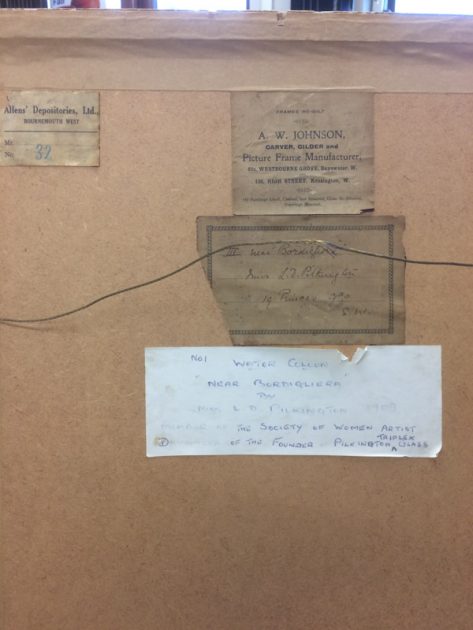 Allens' Depositories, Ltd.,
BOURNEMOUTH WEST
Mr.
No. 32
FRAMES RE-GILT
A. W. JOHNSON,
CARVER, GILDER and
Picture Frame Manufacturer,
WESTBOURNE GROVE, Bayswater, W.
HIGH STREET, Kensington, W.
III near Bordighera
Miss L. D. Pilkington
19 Princes
No1 WATER COLOUR
"NEAR BORDIGLIERA"
BY
MISS L D PILKINGTON
MEMBER OF THE SOCIETY OF WOMEN ARTIST
OF THE FOUNDER PILKINGTON TRIPLEX GLASS